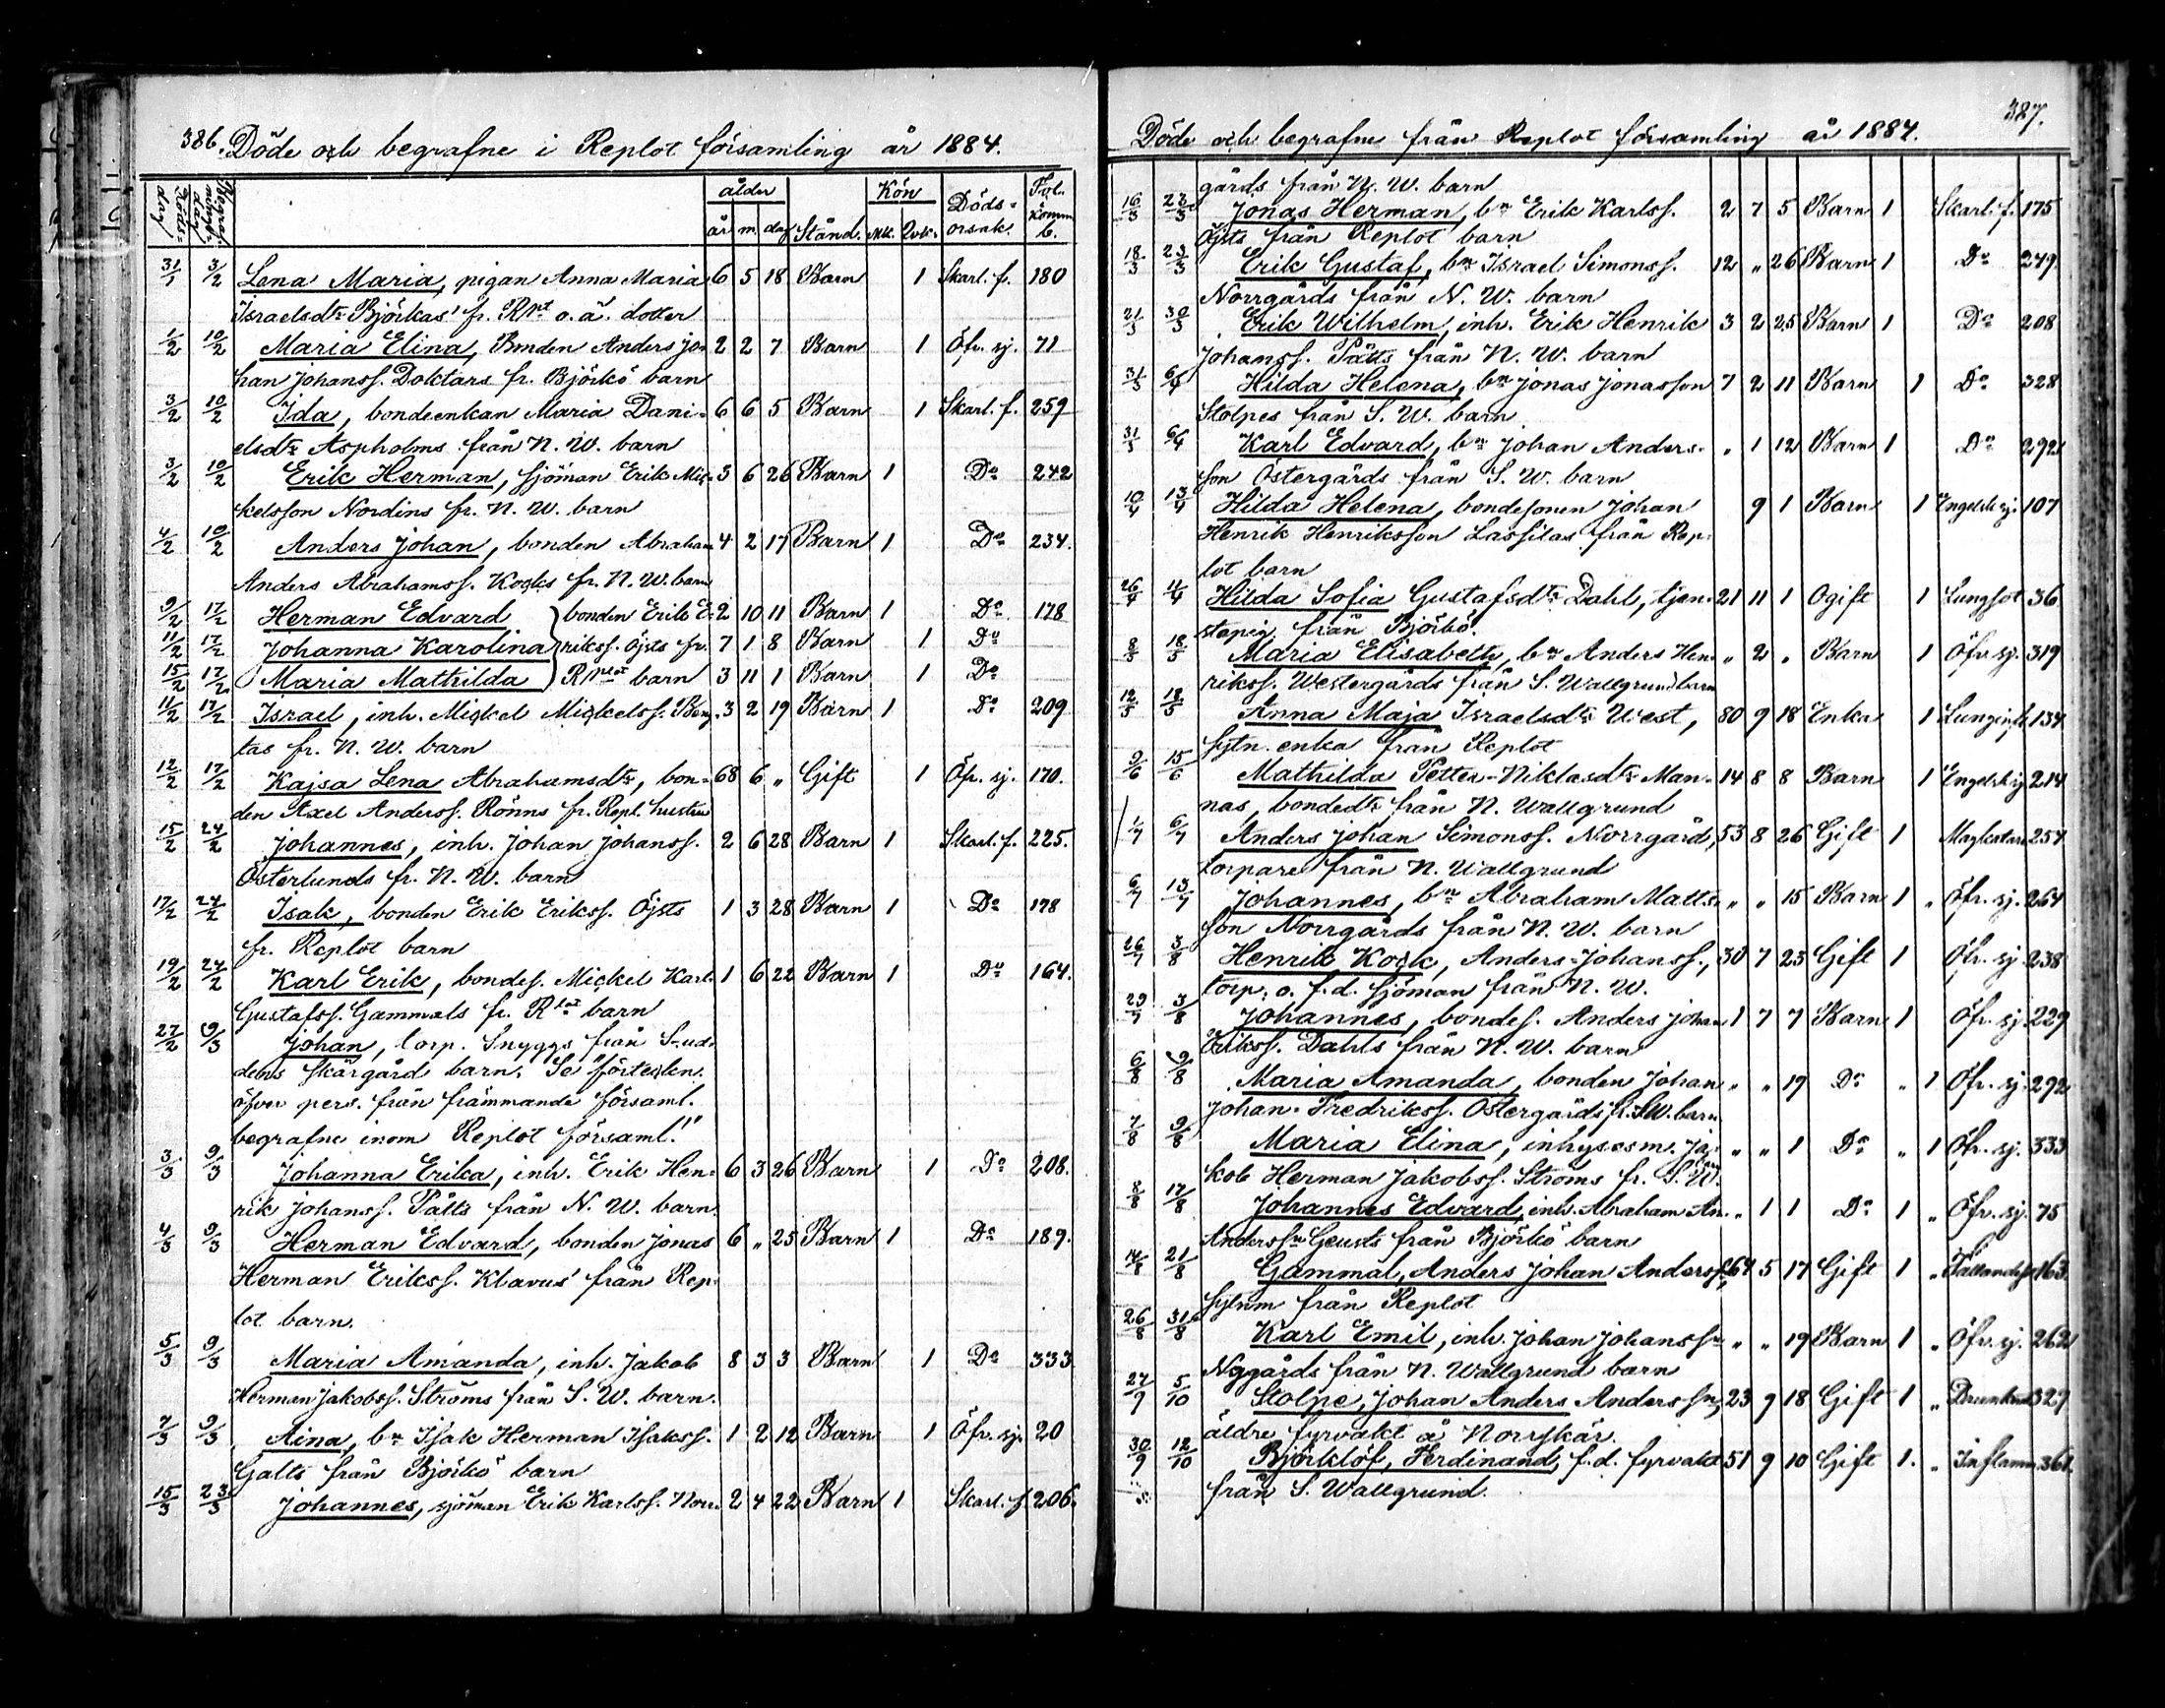 386. Döde och begrafne i Replot församling år 1884.
Döds-dag
ålder Kön Döds- Fol.
år m. dag Stånd. Mk. Qvk. orsak.
31/1 3/2 Lena Maria, pigan Anna Maria 6 5 18 Barn 1 Skarl. f. 180
Israelsdtr Björkas' fr. o. ä. dotter
1/2 10/2 Maria Elina, Bonden Anders Jo- 2 2 7 Barn 1 Öfr. sj. 71
han Johanss. Doktars fr. Björkö barn
3/2 10/2 Ida, bondeenkan Maria Dani- 6 6 5 Barn 1 Skarl. f. 259
elsdtr Aspholms från N. W. barn
3/2 10/2 Erik Herman, sjöman Erik Mic- 3 6 26 Barn 1 Do 242
kelsson Nordins fr. N. W. barn
4/2 10/2 Anders Johan, bonden Abraham 4 2 17 Barn 1 Do 234.
Anders Abrahamss. Kocks fr. N. W. barn
9/2 17/2 Herman Edvard bonden Erik E- 2 10 11 Barn 1 Do 178
11/2 17/2 Johanna Karolina rikss. Öjsts fr. 7 1 8 Barn 1 Do
15/2 17/2 Maria Mathilda barn 3 11 1 Barn 1 Do
11/2 17/2 Israel, inh. Mickel Mickelss. Beng- 3 2 19 Barn 1 Do 209
tas fr. N. W. barn
12/2 17/2 Kajsa Lena Abrahamsdtr, bon- 68 6 „ Gift 1 Öfr. sj. 170.
den Axel Anderss. Rönns fr. Repl. hustru
15/2 24/2 Johannes, inh. Johan Johanss. 2 6 28 Barn 1 Skarl. f. 225.
Österlunds fr. N. W. barn
17/2 24/2 Isak, bonden Erik Erikss. Öjsts 1 3 28 Barn 1 Do 178
fr. Replot barn
19/2 24/2 Karl Erik, bondes. Mickel Karl- 1 6 22 Barn 1 Do 164.
Gustafss. Gammals fr. barn
27/2 9/3 Johan, torp. Snyggs från
skärgård barn. Se
öfver pers. från främmande församl.
begrafne inom Replot församl."
3/3 9/3 Johanna Erika, inh. Erik Hen- 6 3 26 Barn 1 Do 208.
rik Johanss. Pätts från N. W. barn.
4/3 9/3 Herman Edvard, bonden Jonas 6 „ 25 Barn 1 Do 189.
Herman Erikss. Klavus' från Rep-
lot barn.
5/3 9/3 Maria Amanda, inh. Jakob 8 3 3 Barn 1 Do 333
Herman Jakobss. Ströms från S. W. barn.
7/3 9/3 Aina, bn Isak Herman Isakss. 1 2 12 Barn 1 Öfr. sj. 20
Galts från Björkö barn
15/3 23/3 Johannes, sjöman Erik Karlss. Norr- 2 4 22 Barn 1 Skarl. f. 206.
387.
Döde och begrafne från Replot församling år 1884.
gårds från N. W. barn
16/3 23/3 Jonas Herman, bn Erik Karlss. 2 7 5 Barn 1 Skarl. f. 175
Öjsts från Replot barn
18/3 23/3 Erik Gustaf, bn Israel Simonss. 12 „ 26 Barn 1 Do 249
Norrgårds från N. W. barn
21/3 30/3 Erik Wilhelm, inh. Erik Henrik 3 2 25 Barn 1 Do 208
Johanss. Pätts från N. W. barn
31/3 6/4 Hilda Helena, bn Jonas Jonasson 7 2 11 Barn 1 Do 328
Stolpes från S. W. barn
31/3 6/4 Karl Edvard, bn Johan Anders- „ 1 12 Barn 1 Do 292
son Östergårds från S. W. barn
10/4 13/4 Hilda Helena, bondesonen Johan 9 1 Barn 1 Engelsk sj. 107
Henrik Henriksson Lassilas från Rep-
lot barn
26/4 Hilda Sofia Gustafsdtr Dahl, tjen- 21 11 1 Ogift 1 Lungsot 36
stepig. från Björkö.
8/5 18/5 Maria Elisabeth, bn Anders Hen- „ 2 „ Barn 1 Öfr. sj. 319
rikss. Westergårds från S. Wallgrund barn
12/5 18/5 Anna Maja Israelsdtr West, 80 9 18 Enka 1 134
sytn. enka från Replot
9/6 15/6 Mathilda Petter-Niklasdtr Man- 14 8 8 Barn 1 Engelsk sj. 214
nas, bondedtr från N. Wallgrund
1/7 6/7 Anders Johan Simonss. Norrgård, 53 8 26 Gift 1 Magkatarr 254
torpare från N. Wallgrund
6/7 13/7 Johannes, bn Abraham Matts- „ „ 15 Barn 1 „ Öfr. sj. 264
son Norrgårds från N. W. barn
26/7 3/8 Henrik Kock, Anders-Johanss., 30 7 23 Gift 1 Öfr. sj. 238
torp. o. f.d. sjöman från N. W.
29/7 3/8 Johannes, bondes. Anders Johan 1 7 7 Barn 1 Öfr. sj. 229
Erikss. Dahls från N. W. barn
6/8 9/8 Maria Amanda, bonden Johan „ „ 19 Do „ 1 Öfr. sj. 292
Johan-Fredrikss. Östergårds fr. S.W. barn
7/8 9/8 Maria Elina, inhysesm. Ja- „ „ 1 Do „ 1 Öfr. sj. 333
kob Herman Jakobss. Ströms fr. S. W. barn
8/8 17/8 Johannes Edvard, inh. Abraham An- „ 1 1 Do 1 „ Öfr. sj. 75
Anderssn Geusts från Björkö barn
14/8 21/8 Gammal, Anders Johan Anderss. 64 5 17 Gift 1 „ 163
sytnm från Replot
26/8 31/8 Karl Emil, inh. Johan Johanssn „ „ 19 Barn 1 „ Öfr. sj. 262
Nygårds från N. Wallgrund barn
27/9 5/10 Stolpe, Johan Anders Anderssn, 23 9 18 Gift 1 „ Drunknad 329
äldre fyrvakt å Norrskär.
30/9 12/10 Björklöf, Ferdinand, f.d. fyrvakt 51 9 10 Gift 1. „ Inflamm. 361.
från S. Wallgrund.